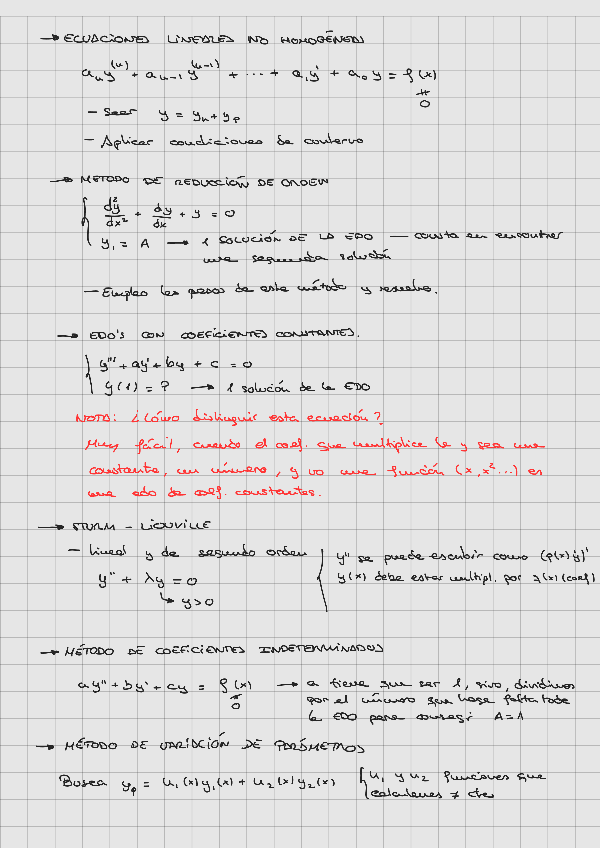 → ECUACIONES LINEALES NO HOMOGÉNEAS
aₙy⁽ⁿ⁾ + aₙ₋₁y⁽ⁿ⁻¹⁾ + ... + a₁y' + a₀y = f(x)
≠
0
- Sacar y = yₕ + yₚ
- Aplicar condiciones de contorno
→ METODO DE REDUCCIÓN DE ORDEN
d²y/dx² + dy/dx + y = 0
y₁ = A → 1 SOLUCIÓN DE LA EDO — consta en encontrar
una segunda solución
- Empleo los pasos de este método y resuelvo.
→ EDO'S CON COEFICIENTES CONSTANTES.
y''' + ay' + by + c = 0
y(1) = ? → 1 solución de la EDO
NOTA: ¿Cómo distinguir esta ecuación?
Muy fácil, cuando el coef. que multiplica la y sea una
constante, un número, y no una función (x, x²...) es
una edo de coef. constantes.
→ STURM - LIOUVILLE
- Lineal y de segundo orden
y'' se puede escribir como (p(x)y')'
y'' + λy = 0
y(x) debe estar multipl. por λ(x)(coef)
↳ y>0
→ MÉTODO DE COEFICIENTES INDETERMINADOS
ay'' + by' + cy = f(x) → a tiene que ser 1, sino, dividimos
≠
0
por el número que haga falta toda
la EDO para conseguir A=1
→ MÉTODO DE VARIACIÓN DE PARÁMETROS
Busca yₚ = u₁(x)y₁(x) + u₂(x)y₂(x) { u₁ y u₂ funciones que
calculamos ≠ ctes